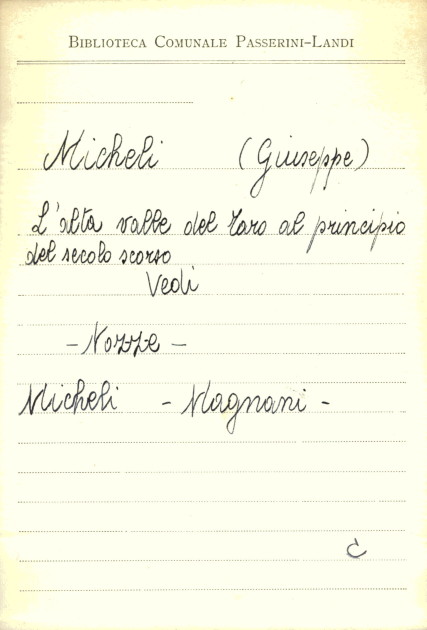 Biblioteca Comunale Passerini-Landi
Micheli (Giuseppe)
L'alta valle del Taro al principio
del secolo scorso
Vedi
- Nozze -
Micheli - Magnani -
C